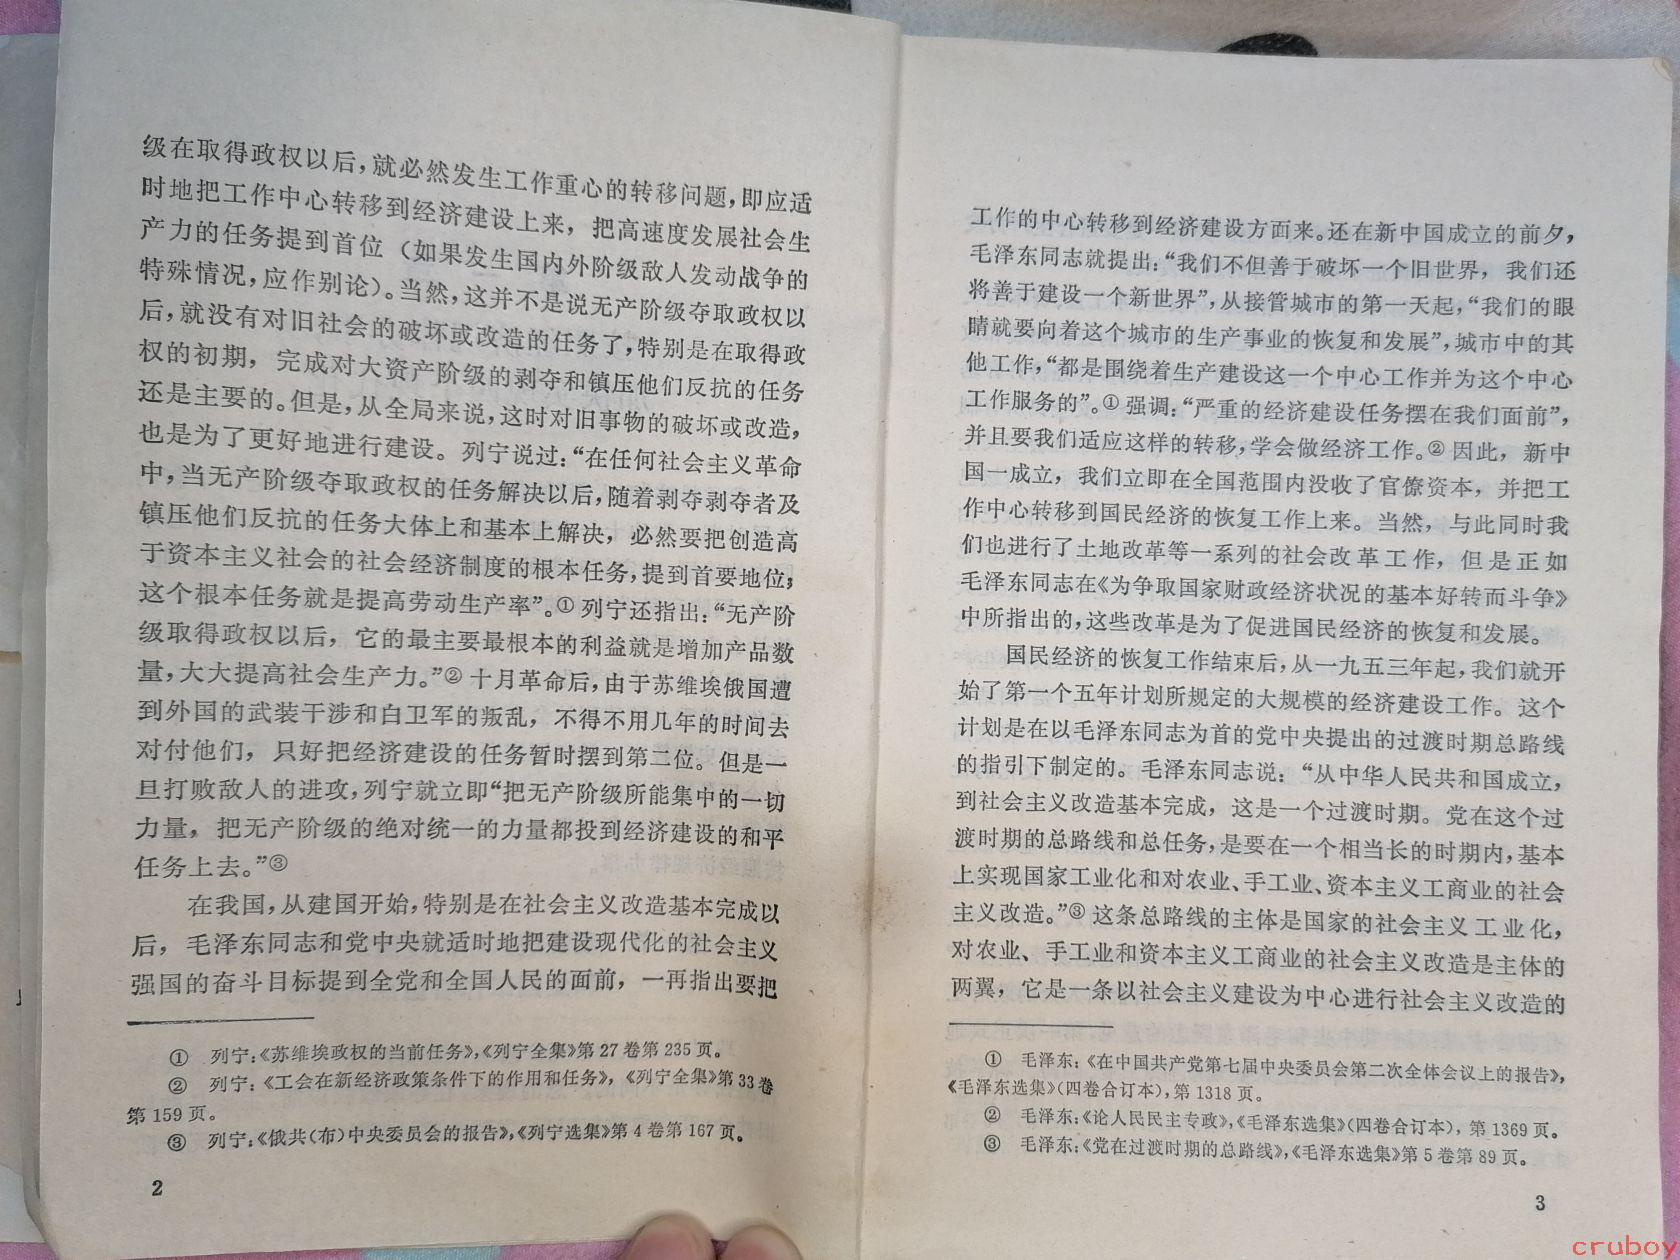 级在取得政权以后，就必然发生工作重心的转移问题，即应适
时地把工作中心转移到经济建设上来，把高速度发展社会生
产力的任务提到首位（如果发生国内外阶级敌人发动战争的
特殊情况，应作别论）。当然，这并不是说无产阶级夺取政权以
后，就没有对旧社会的破坏或改造的任务了，特别是在取得政
权的初期，完成对大资产阶级的剥夺和镇压他们反抗的任务
还是主要的。但是，从全局来说，这时对旧事物的破坏或改造，
也是为了更好地进行建设。列宁说过：“在任何社会主义革命
中，当无产阶级夺取政权的任务解决以后，随着剥夺剥夺者及
镇压他们反抗的任务大体上和基本上解决，必然要把创造高
于资本主义社会的社会经济制度的根本任务，提到首要地位；
这个根本任务就是提高劳动生产率”。①列宁还指出：“无产阶
级取得政权以后，它的最主要最根本的利益就是增加产品数
量，大大提高社会生产力。”②十月革命后，由于苏维埃俄国遭
到外国的武装干涉和白卫军的叛乱，不得不用几年的时间去
对付他们，只好把经济建设的任务暂时摆到第二位。但是一
旦打败敌人的进攻，列宁就立即“把无产阶级所能集中的一切
力量，把无产阶级的绝对统一的力量都投到经济建设的和平
任务上去。”③
在我国，从建国开始，特别是在社会主义改造基本完成以
后，毛泽东同志和党中央就适时地把建设现代化的社会主义
强国的奋斗目标提到全党和全国人民的面前，一再指出要把
① 列宁：《苏维埃政权的当前任务》，《列宁全集》第27卷第235页。
② 列宁：《工会在新经济政策条件下的作用和任务》，《列宁全集》第33卷
第159页。
③ 列宁：《俄共（布）中央委员会的报告》，《列宁选集》第4卷第167页。
2
工作的中心转移到经济建设方面来。还在新中国成立的前夕，
毛泽东同志就提出：“我们不但善于破坏一个旧世界，我们还
将善于建设一个新世界”，从接管城市的第一天起，“我们的眼
睛就要向着这个城市的生产事业的恢复和发展”，城市中的其
他工作，“都是围绕着生产建设这一个中心工作并为这个中心
工作服务的”。①强调：“严重的经济建设任务摆在我们面前”，
并且要我们适应这样的转移，学会做经济工作。②因此，新中
国一成立，我们立即在全国范围内没收了官僚资本，并把工
作中心转移到国民经济的恢复工作上来。当然，与此同时我
们也进行了土地改革等一系列的社会改革工作，但是正如
毛泽东同志在《为争取国家财政经济状况的基本好转而斗争》
中所指出的，这些改革是为了促进国民经济的恢复和发展。
国民经济的恢复工作结束后，从一九五三年起，我们就开
始了第一个五年计划所规定的大规模的经济建设工作。这个
计划是在以毛泽东同志为首的党中央提出的过渡时期总路线
的指引下制定的。毛泽东同志说：“从中华人民共和国成立，
到社会主义改造基本完成，这是一个过渡时期。党在这个过
渡时期的总路线和总任务，是要在一个相当长的时期内，基本
上实现国家工业化和对农业、手工业、资本主义工商业的社会
主义改造。”③这条总路线的主体是国家的社会主义工业化，
对农业、手工业和资本主义工商业的社会主义改造是主体的
两翼，它是一条以社会主义建设为中心进行社会主义改造的
① 毛泽东：《在中国共产党第七届中央委员会第二次全体会议上的报告》，
《毛泽东选集》（四卷合订本），第1318页。
② 毛泽东：《论人民民主专政》，《毛泽东选集》（四卷合订本），第1369页。
③ 毛泽东：《党在过渡时期的总路线》，《毛泽东选集》第5卷第89页。
3
cruboy